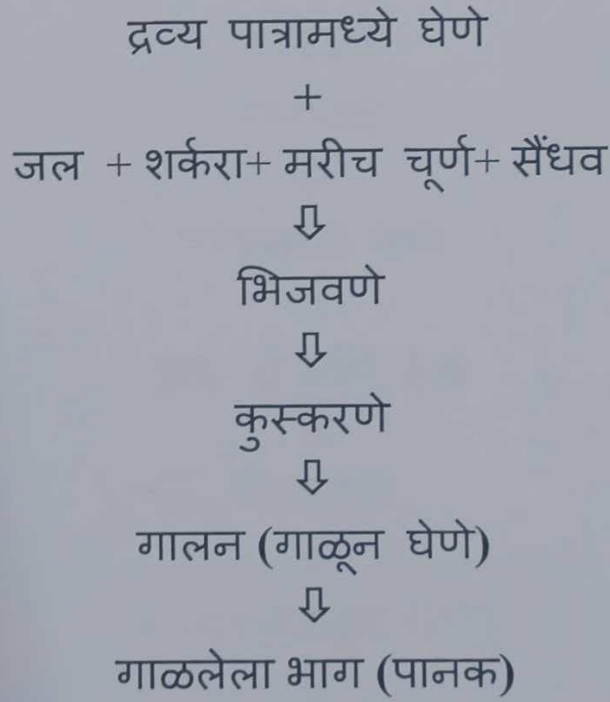 द्रव्य पात्रामध्ये घेणे
+
जल + शर्करा+ मरीच चूर्ण+ सैंधव
⇩
भिजवणे
⇩
कुस्करणे
⇩
गालन (गाळून घेणे)
⇩
गाळलेला भाग (पानक)